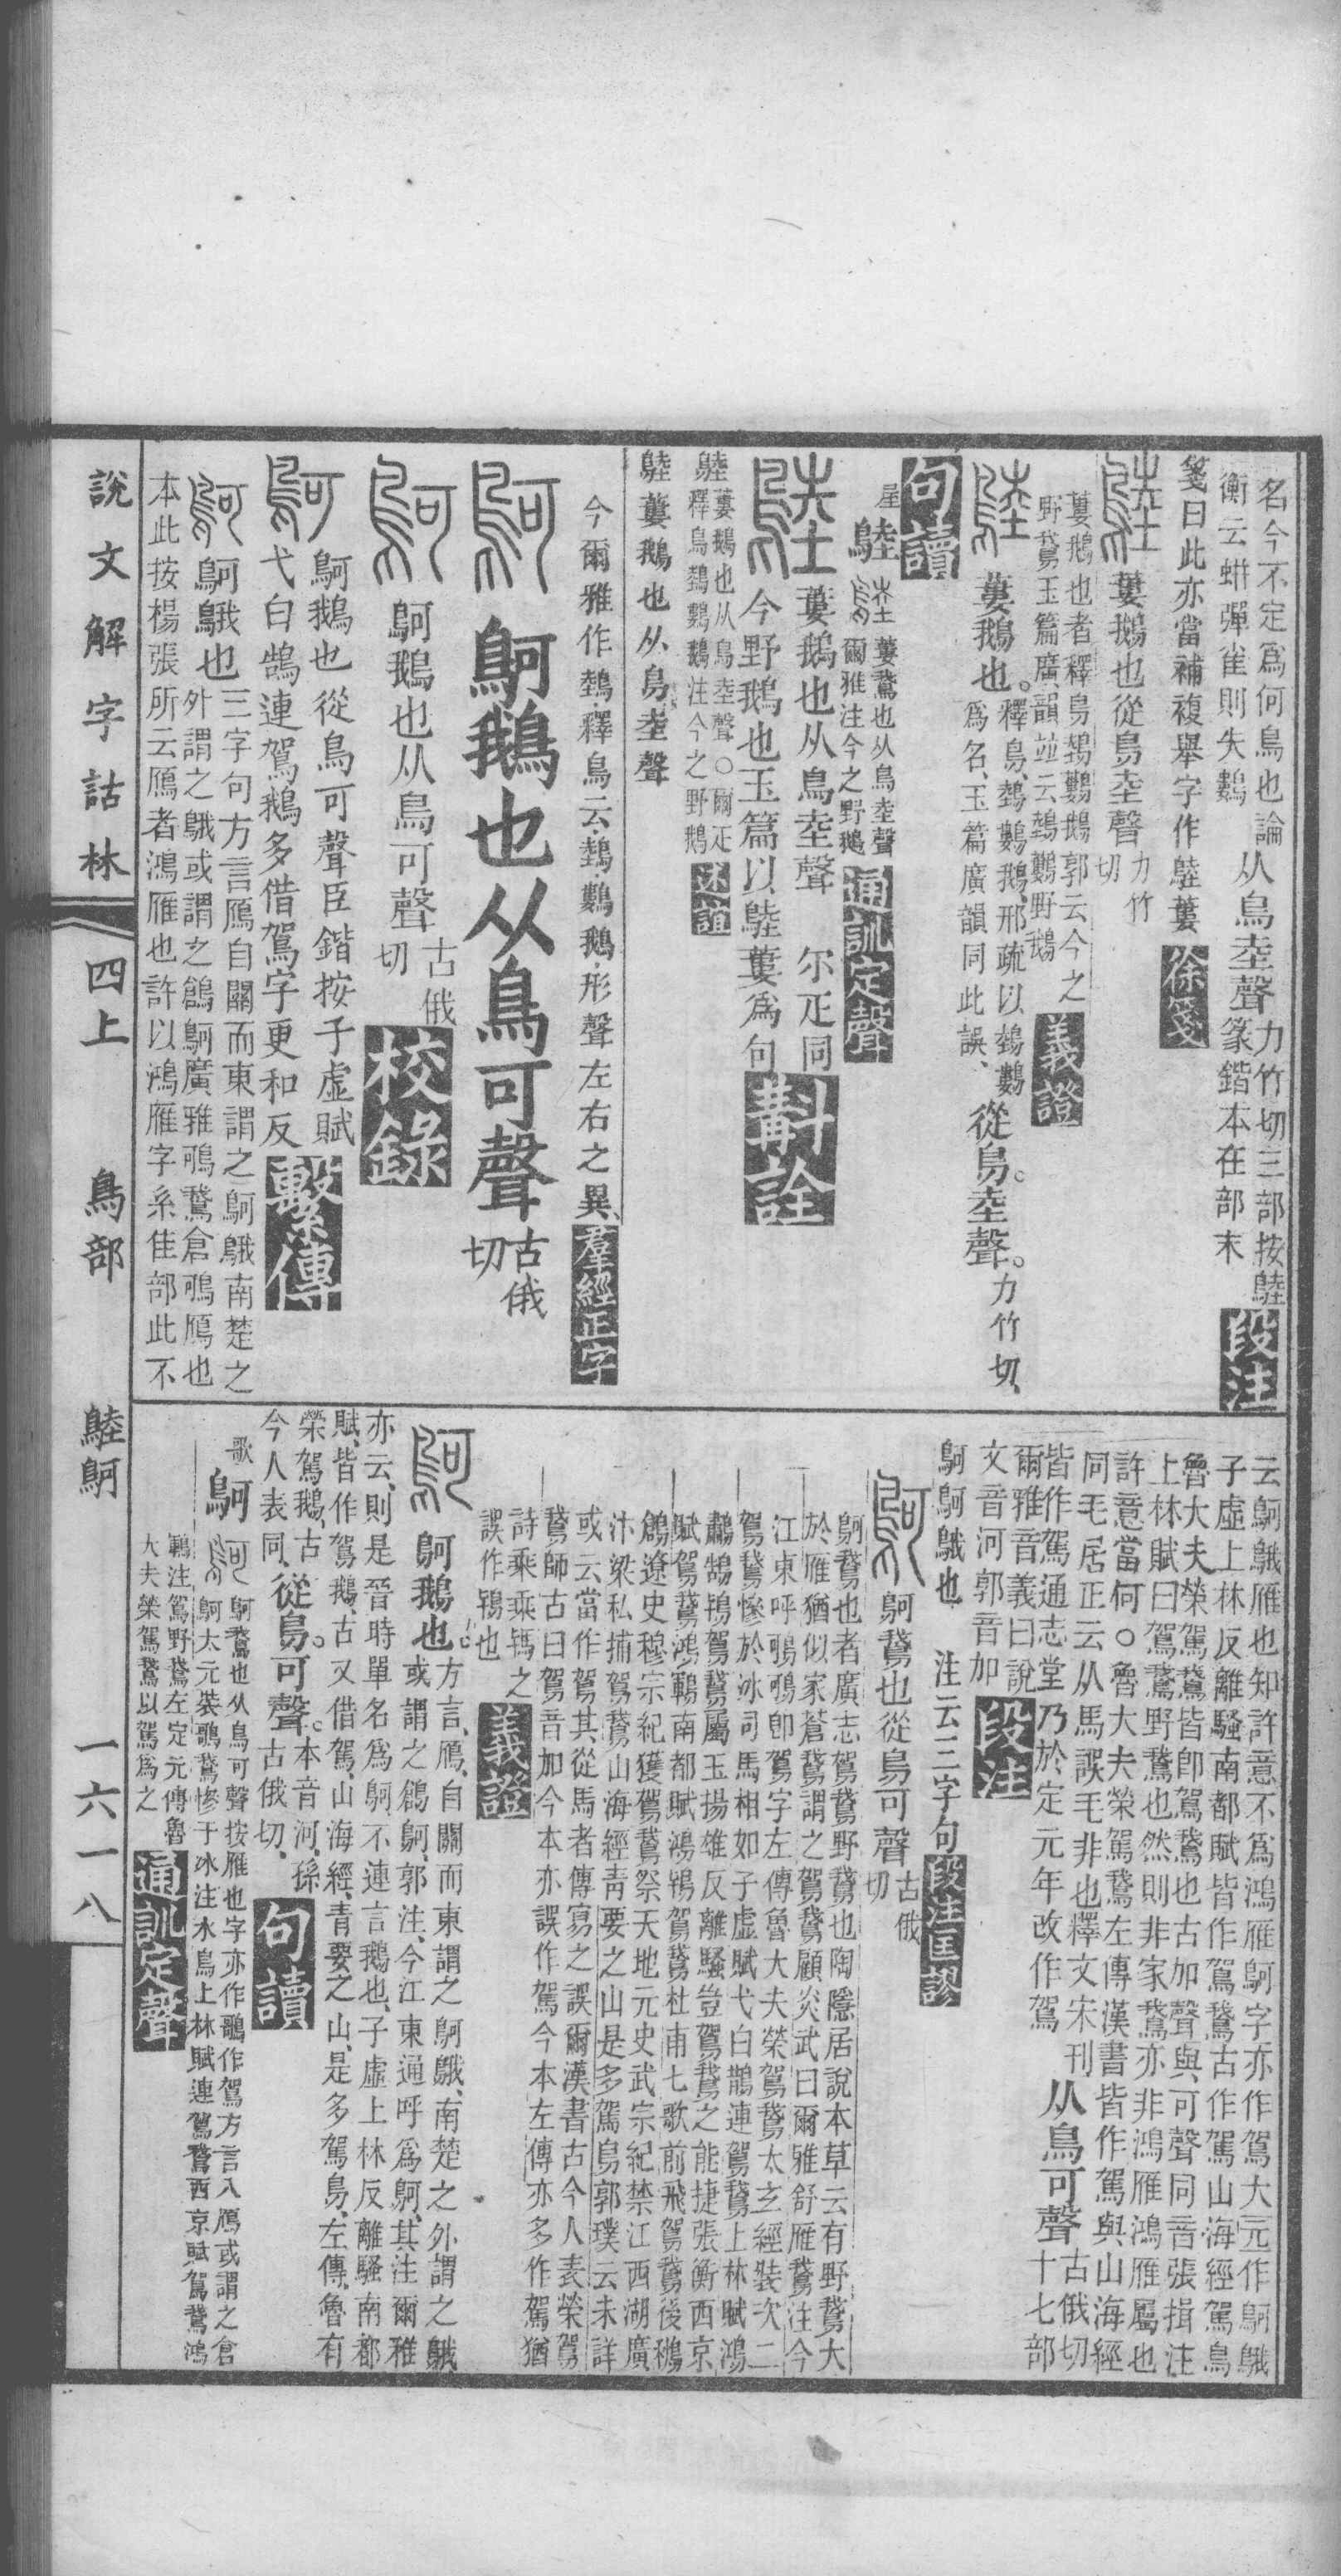 名今不定爲何鳥也論从鳥坴聲力竹切三部按鵱
衡云蚈彈雀則失鷚篆鍇本在部末段注
箋曰此亦當補複舉字作鵱蔞徐箋
蔞鵝也從鳥坴聲力竹切
蔞鵝也者釋鳥鵱鷜鵝郭云今之
野鵞玉篇廣韻竝云鵱鷜野鵝義證
蔞鵝也。釋鳥、鵱鷜鵝、邢疏以鵱鷜
爲名、玉篇廣韻同此誤、從鳥。坴聲。力竹切、
句讀
屋鵱蔞鵞也从鳥坴聲
爾雅注今之野鵝通訓定聲
蔞鵝也从鳥坴聲尔疋同
今野鵝也玉篇以鵱蔞爲句斠詮
鵱蔞鵝也从鳥坴聲○爾疋
釋鳥鵱鷜鵝注今之野鵝述誼
鵱蔞鵝也从鳥坴聲
今爾雅作鵱釋鳥云鵱鷜鵝形聲左右之異羣經正字
鴚鵝也从鳥可聲古俄切
鴚鵝也从鳥可聲古俄切校錄
鴚鵝也從鳥可聲臣鍇按子虛賦
弋白鵠連駕鵝多借駕字更和反繫傳
鴚䳘也三字句方言鴈自關而東謂之鴚䳘南楚之
外謂之䳘或謂之鶬鴚廣雅鳴鵞倉鳴鴈也
本此按楊張所云鴈者鴻雁也許以鴻雁字系隹部此不
云鴚䳘雁也知許意不爲鴻雁鴚字亦作鴐大元作鴚䳘
子虛上林反離騷南都賦皆作鴐鵞古作駕山海經駕鳥
魯大夫榮駕鵞皆卽駕鵞也古加聲與可聲同音張揖注
上林賦曰鴐鵞野鵞也然則非家鵞亦非鴻雁鴻雁屬也
許意當何○魯大夫榮駕鵞左傳漢書皆作駕與山海經
同毛居正云从馬誤毛非也釋文宋刊
皆作駕通志堂乃於定元年改作鴐从鳥可聲古俄切十七部
爾雅音義曰說
文音河郭音加段注
鴚鴚䳘也注云三字句段注匡謬
鴚鵞也從鳥可聲古俄切
鴚鵞也者廣志鴐鵞野鵞也陶隱居說本草云有野鵞大
於雁猶似家蒼鵞謂之鴐鵞顧炎武曰爾雅舒雁鵞注今
江東呼鳴鳴卽駕字左傳魯大夫榮鴐鵞太玄經裝次二
鴐鵞慘於冰司馬相如子虛賦弋白鵠連鴐鵞上林賦鴻
鷫鵠鴇鴐鵞屬玉揚雄反離騷豈鴐鵞之能捷張衡西京
賦鴐鵞鴻鶤南都賦鴻鴇鴐鵞杜甫七歌前飛鴐鵞後鶖
鶬遼史穆宗紀獲鴐鵞祭天地元史武宗紀禁江西湖廣
汴梁私捕鴐鵞山海經靑要之山是多駕鳥郭璞云未詳
或云當作鴐其從馬者傳寫之誤爾漢書古今人表榮鴐
鵞師古曰鴐音加今本亦誤作駕今本左傳亦多作駕猶
詩乘乘鴇之
誤作鴇也義證
鴚鵝也。方言、鴈、自關而東謂之鴚䳘、南楚之外謂之䳘
或謂之鶬鴚、郭注、今江東通呼爲鴚、其注爾雅
亦云、則是晉時單名爲鴚、不連言鵝也、子虛上林反離騷南都
賦、皆作鴐鵝、古又借駕、山海經、青要之山、是多駕鳥、左傳、魯有
榮駕鵝、古本音河、孫
今人表同、從鳥。可聲。古俄切、句讀
歌鴚鴚鵞也从鳥可聲按雁也字亦作鴚作鴐方言八鴈或謂之倉
鴚太元裝鴚鵞慘于冰注水鳥上林賦連鴐鵞西京賦鴐鵞鴻
鶤注鴐野鵞左定元傳魯
大夫榮駕鵞以駕爲之通訓定聲
說文解字詁林 四上 鳥部 鵱鴚 一六一八